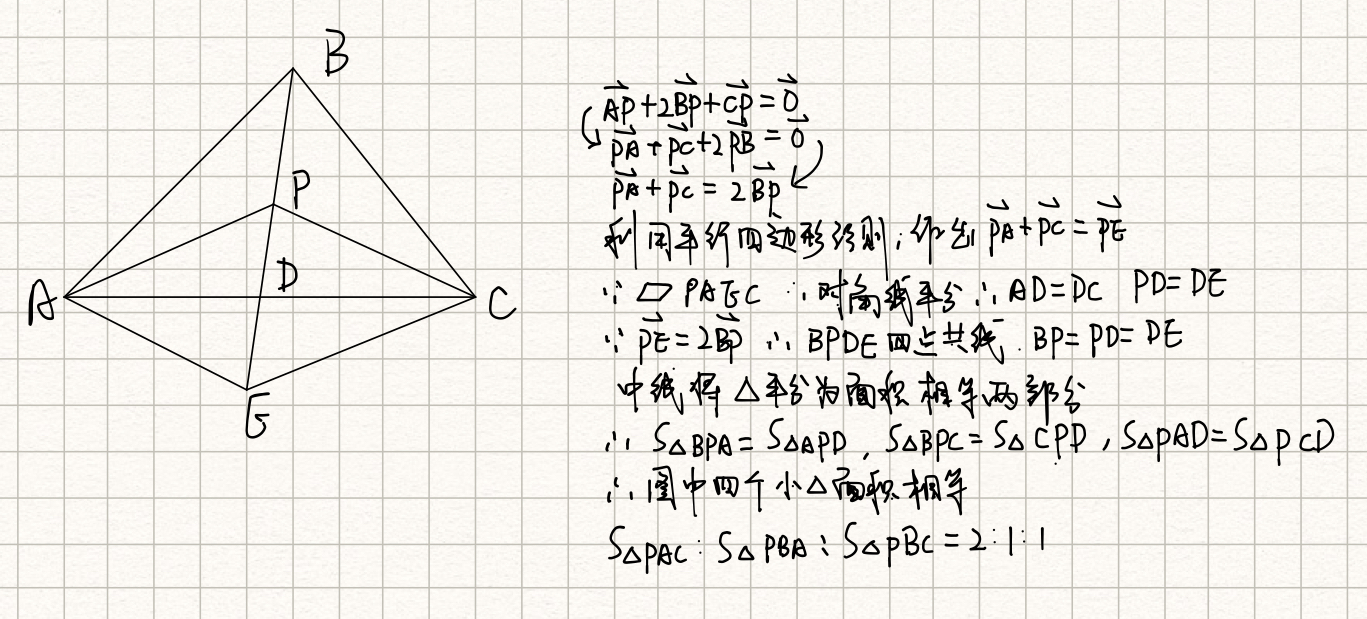 B
P
D
A
C
E
$\overrightarrow{AP}+2\overrightarrow{BP}+\overrightarrow{CP}=\vec{0}$
$\overrightarrow{PA}+\overrightarrow{PC}+2\overrightarrow{PB}=\vec{0}$
$\overrightarrow{PA}+\overrightarrow{PC}=2\overrightarrow{BP}$
利用平行四边形法则,作出 $\overrightarrow{PA}+\overrightarrow{PC}=\overrightarrow{PE}$
∵ ▱ PAEC ∴ 对角线平分 ∴ AD=DC PD=DE
∵ $\overrightarrow{PE}=2\overrightarrow{BP}$ ∴ BPDE四点共线. BP=PD=DE
中线将△平分为面积相等两部分
∴ S△BPA=S△APD, S△BPC=S△CPD, S△PAD=S△PCD
∴ 图中四个小△面积相等
S△PAC:S△PBA:S△PBC=2:1:1